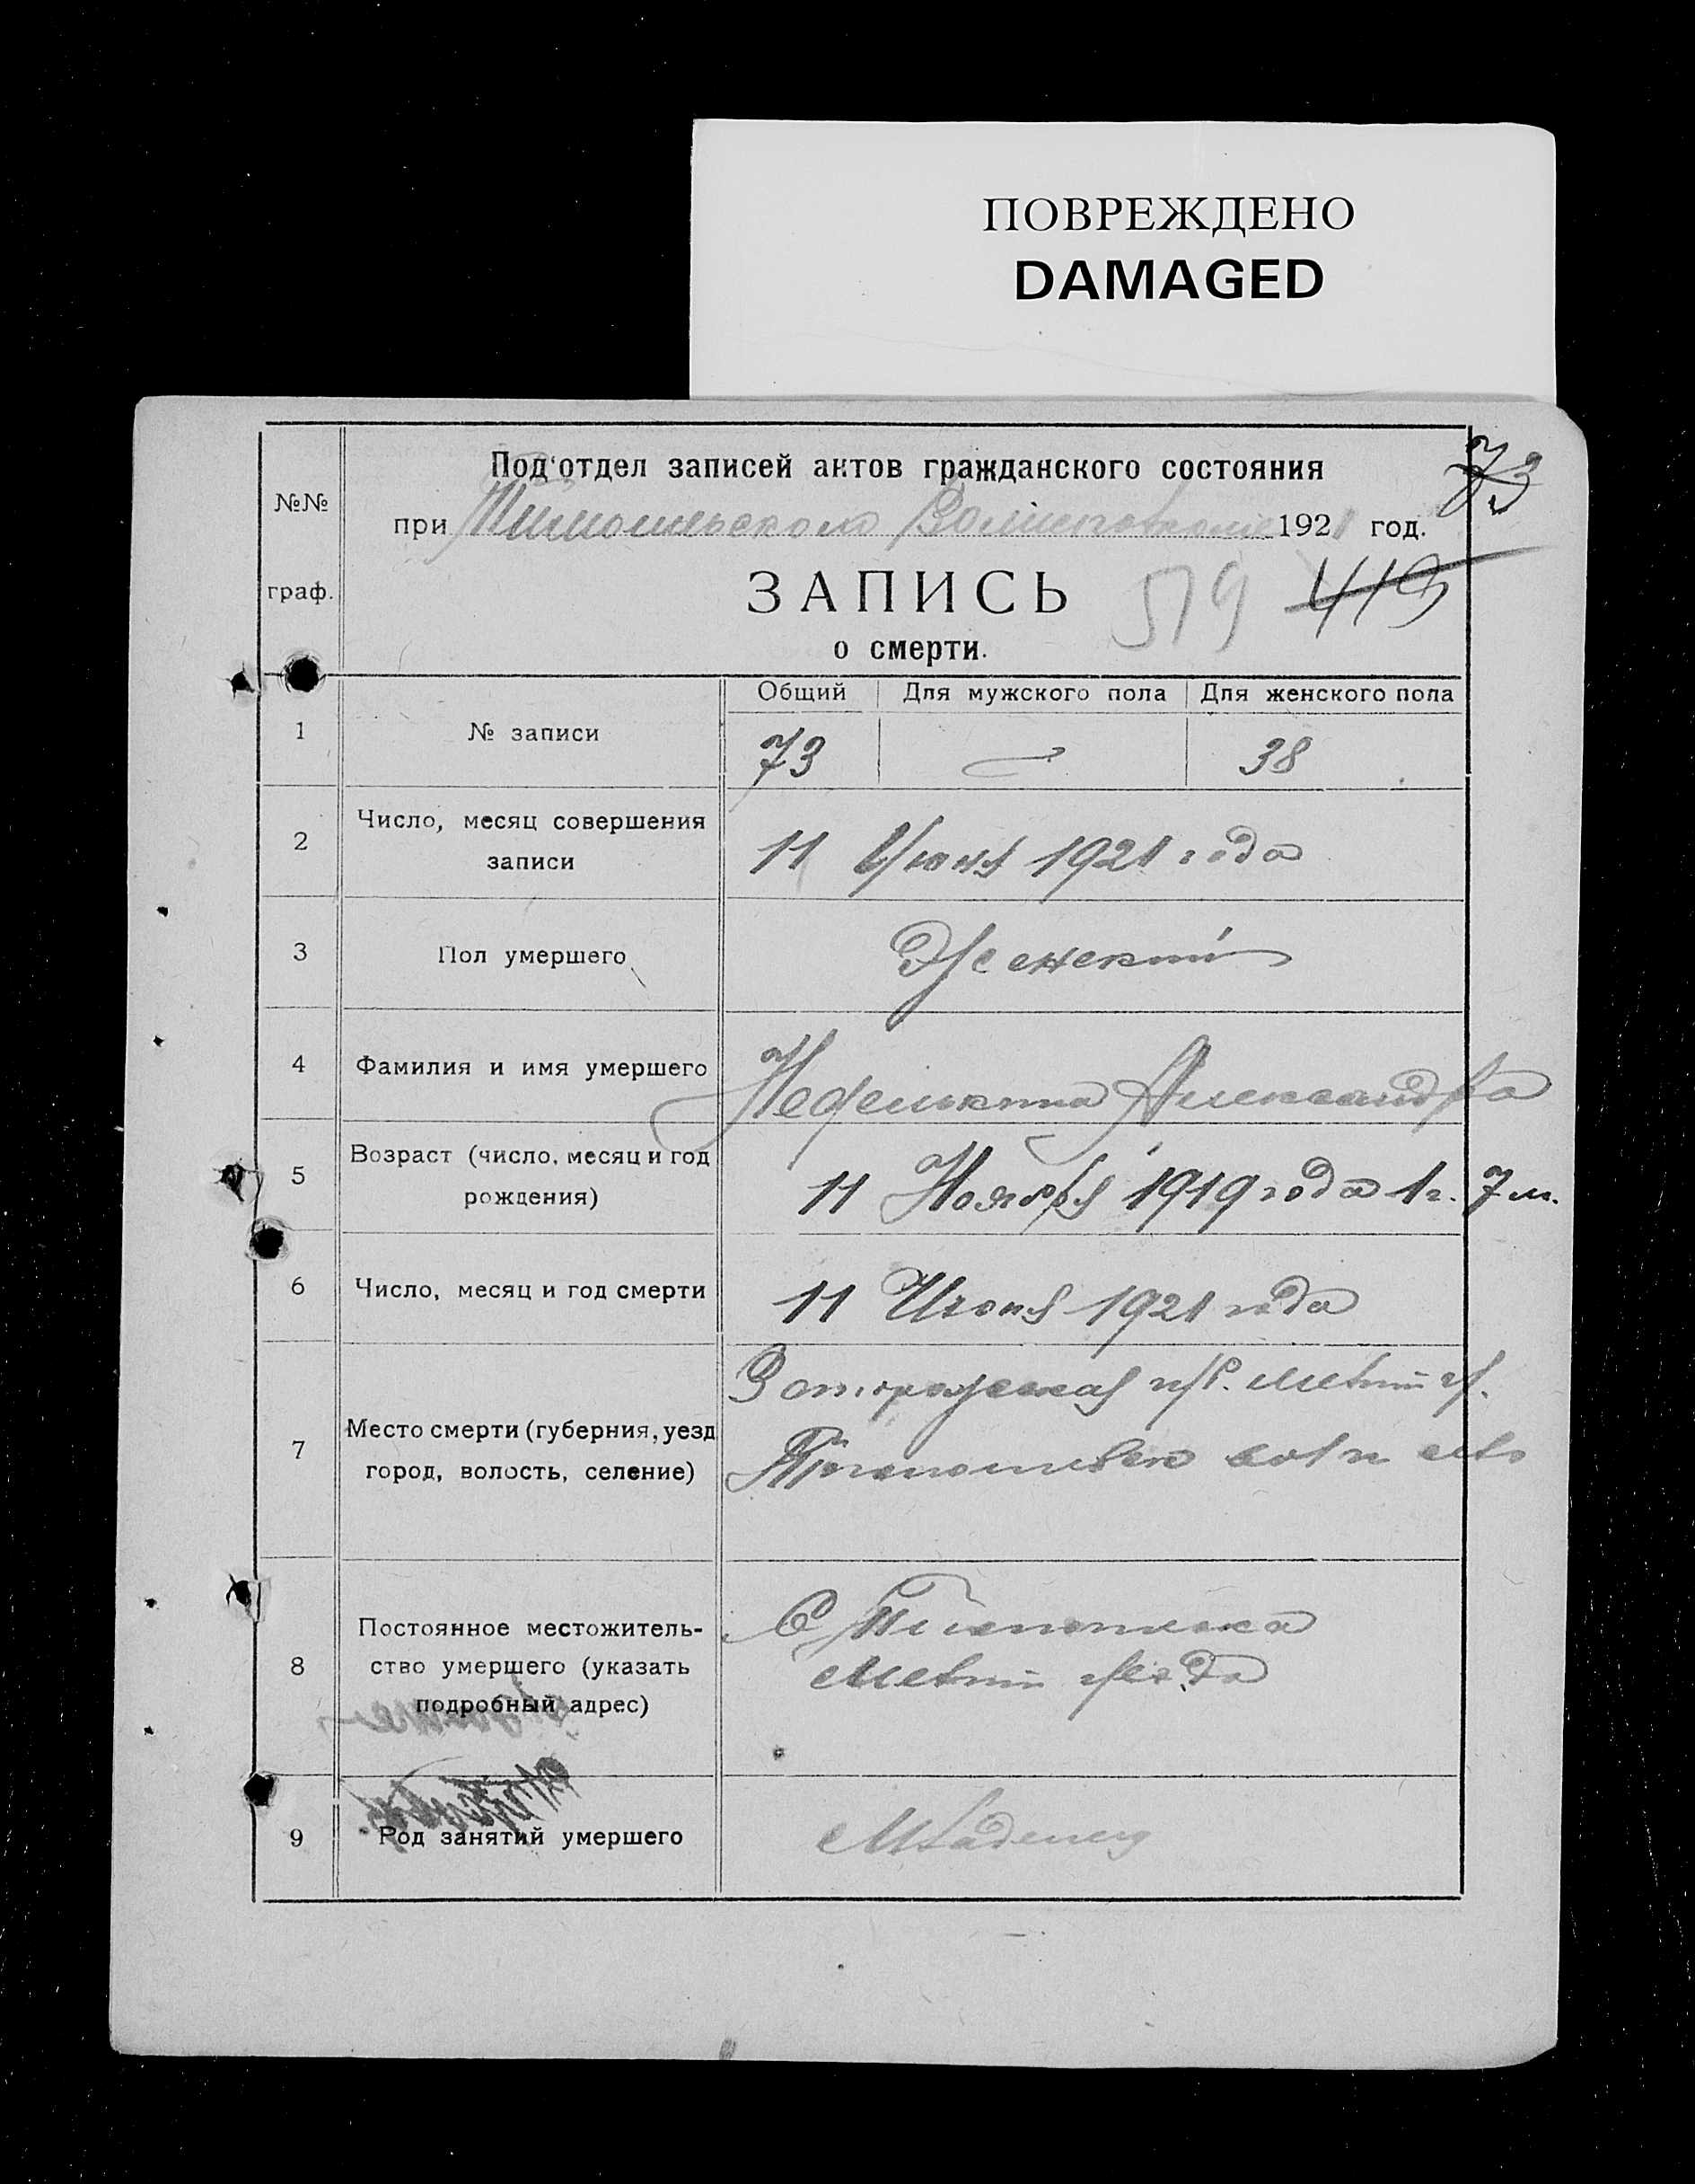 ПОВРЕЖДЕНО
DAMAGED
73
Под'отдел записей актов гражданского состояния
№№
при 1921 год.
ЗАПИСЬ
519 419
граф.
о смерти.
Общий Для мужского пола Для женского пола
1 № записи 73 38
2 Число, месяц совершения
записи
11 Июня 1921 года
3 Пол умершего Женский
4 Фамилия и имя умершего Александра
5 Возраст (число, месяц и год
рождения)
11 Ноября 1919 года 1 г. 7 м.
6 Число, месяц и год смерти 11 Июня 1921 года
7 Место смерти (губерния, уезд
город, волость, селение)
8 Постоянное местожитель-
ство умершего (указать
подробный адрес)
С
уезда
9 Род занятий умершего Младенец